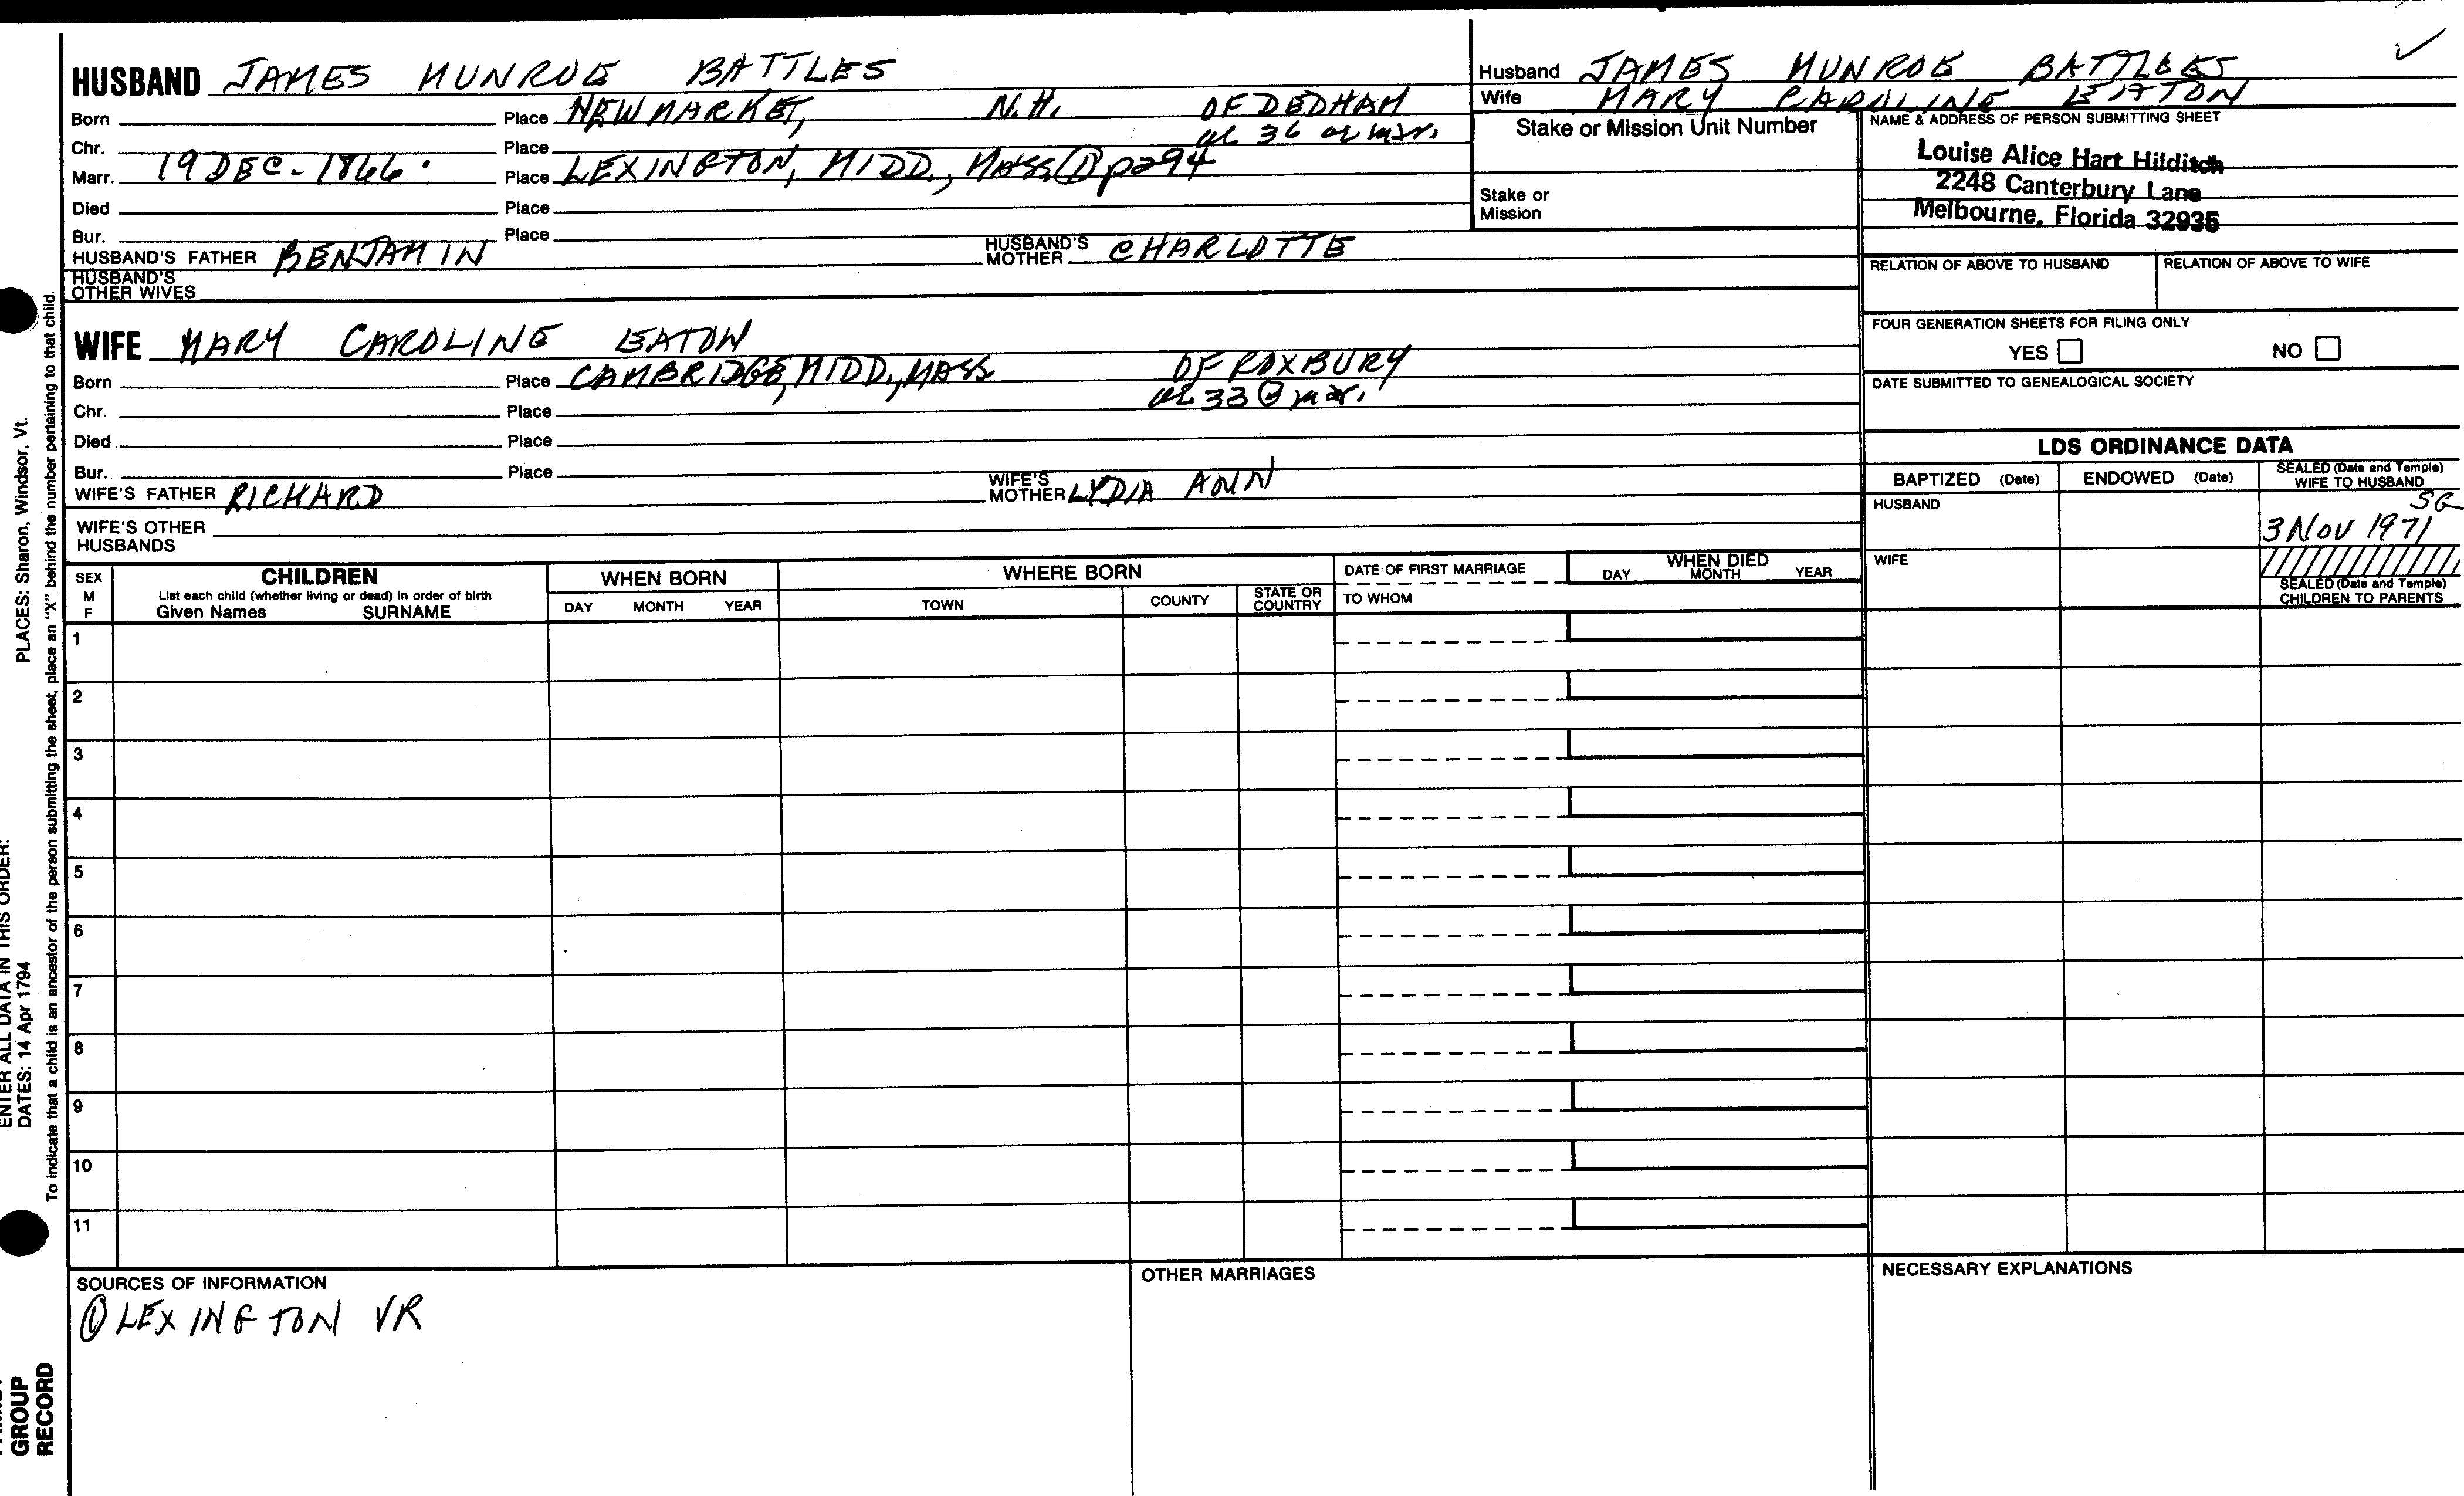 HUSBAND JAMES MUNROE BATTLES
Born Place NEWMARKET, N.H. OF DEDHAM
Chr. Place ae 36 at mar.
Marr. 19 DEC. 1866 Place LEXINGTON, MIDD., MASS ① p294
Died Place
Bur. Place
HUSBAND'S FATHER BENJAMIN HUSBAND'S MOTHER CHARLOTTE
HUSBAND'S
OTHER WIVES
WIFE MARY CAROLINE EATON
Born Place CAMBRIDGE, MIDD., MASS OF ROXBURY
Chr. Place ae 33 @ mar.
Died Place
Bur. Place
WIFE'S FATHER RICHARD WIFE'S MOTHER LYDIA ANN
WIFE'S OTHER
HUSBANDS
Husband JAMES MUNROE BATTLES
Wife MARY CAROLINE EATON
Stake or Mission Unit Number
Stake or
Mission
NAME & ADDRESS OF PERSON SUBMITTING SHEET
Louise Alice Hart Hilditch
2248 Canterbury Lane
Melbourne, Florida 32935
RELATION OF ABOVE TO HUSBAND RELATION OF ABOVE TO WIFE
FOUR GENERATION SHEETS FOR FILING ONLY
YES NO
DATE SUBMITTED TO GENEALOGICAL SOCIETY
LDS ORDINANCE DATA
BAPTIZED (Date) ENDOWED (Date) SEALED (Date and Temple)
WIFE TO HUSBAND
HUSBAND SG
3 NOV 1971
WIFE
SEALED (Date and Temple)
CHILDREN TO PARENTS
SEX
M
F
CHILDREN
List each child (whether living or dead) in order of birth
Given Names SURNAME
WHEN BORN
DAY MONTH YEAR
WHERE BORN
TOWN COUNTY STATE OR
COUNTRY
DATE OF FIRST MARRIAGE
TO WHOM
WHEN DIED
DAY MONTH YEAR
1
2
3
4
5
6
7
8
9
10
11
SOURCES OF INFORMATION
① LEXINGTON VR
OTHER MARRIAGES
NECESSARY EXPLANATIONS
PLACES: Sharon, Windsor, Vt.
ENTER ALL DATA IN THIS ORDER:
DATES: 14 Apr 1794
To indicate that a child is an ancestor of the person submitting the sheet, place an "X" behind the number pertaining to that child.
GROUP
RECORD